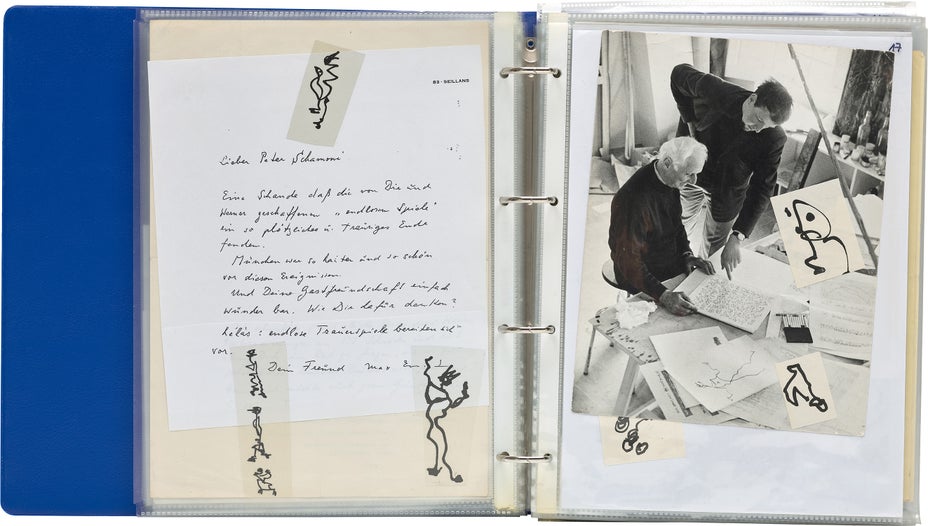 83 - SEILLANS
Lieber Peter Schamoni
Eine Schande daß die von Dir und
Werner geschaffenen „endlosen Spiele"
ein so plötzliches u. Trauriges Ende
fanden.
München war so heiter und so schön
vor diesen Ereignissen.
Und Deine Gastfreundschaft einfach
wunder bar. Wie Dir dafür danken?
hélas: endlose Trauerspiele bereiten sich
vor.
Dein Freund max
17